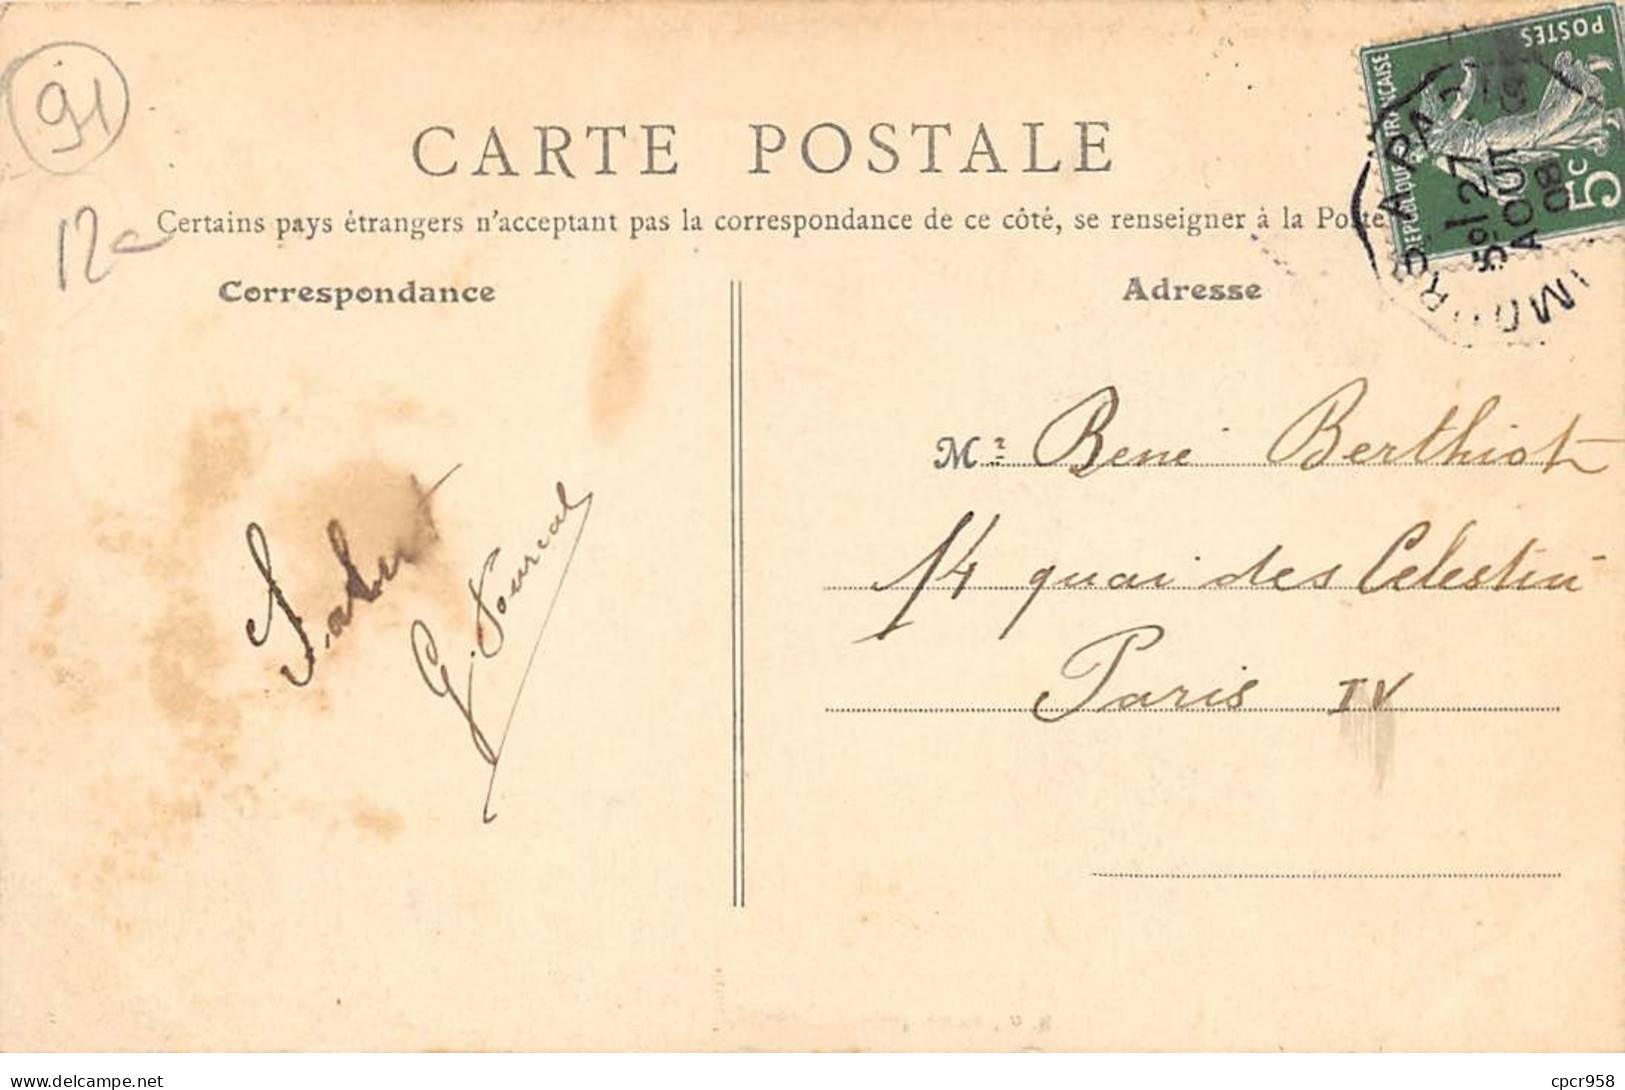 91
CARTE POSTALE
12c
Certains pays étrangers n'acceptant pas la correspondance de ce côté, se renseigner à la Poste
Correspondance
Adresse
POSTES
REPUBLIQUE FRANÇAISE
5c
27
AOUT
08
Mr René Berthiot
14 quai des Celestin
Paris IV
Salut
G.
delcampe.net
cpcr958